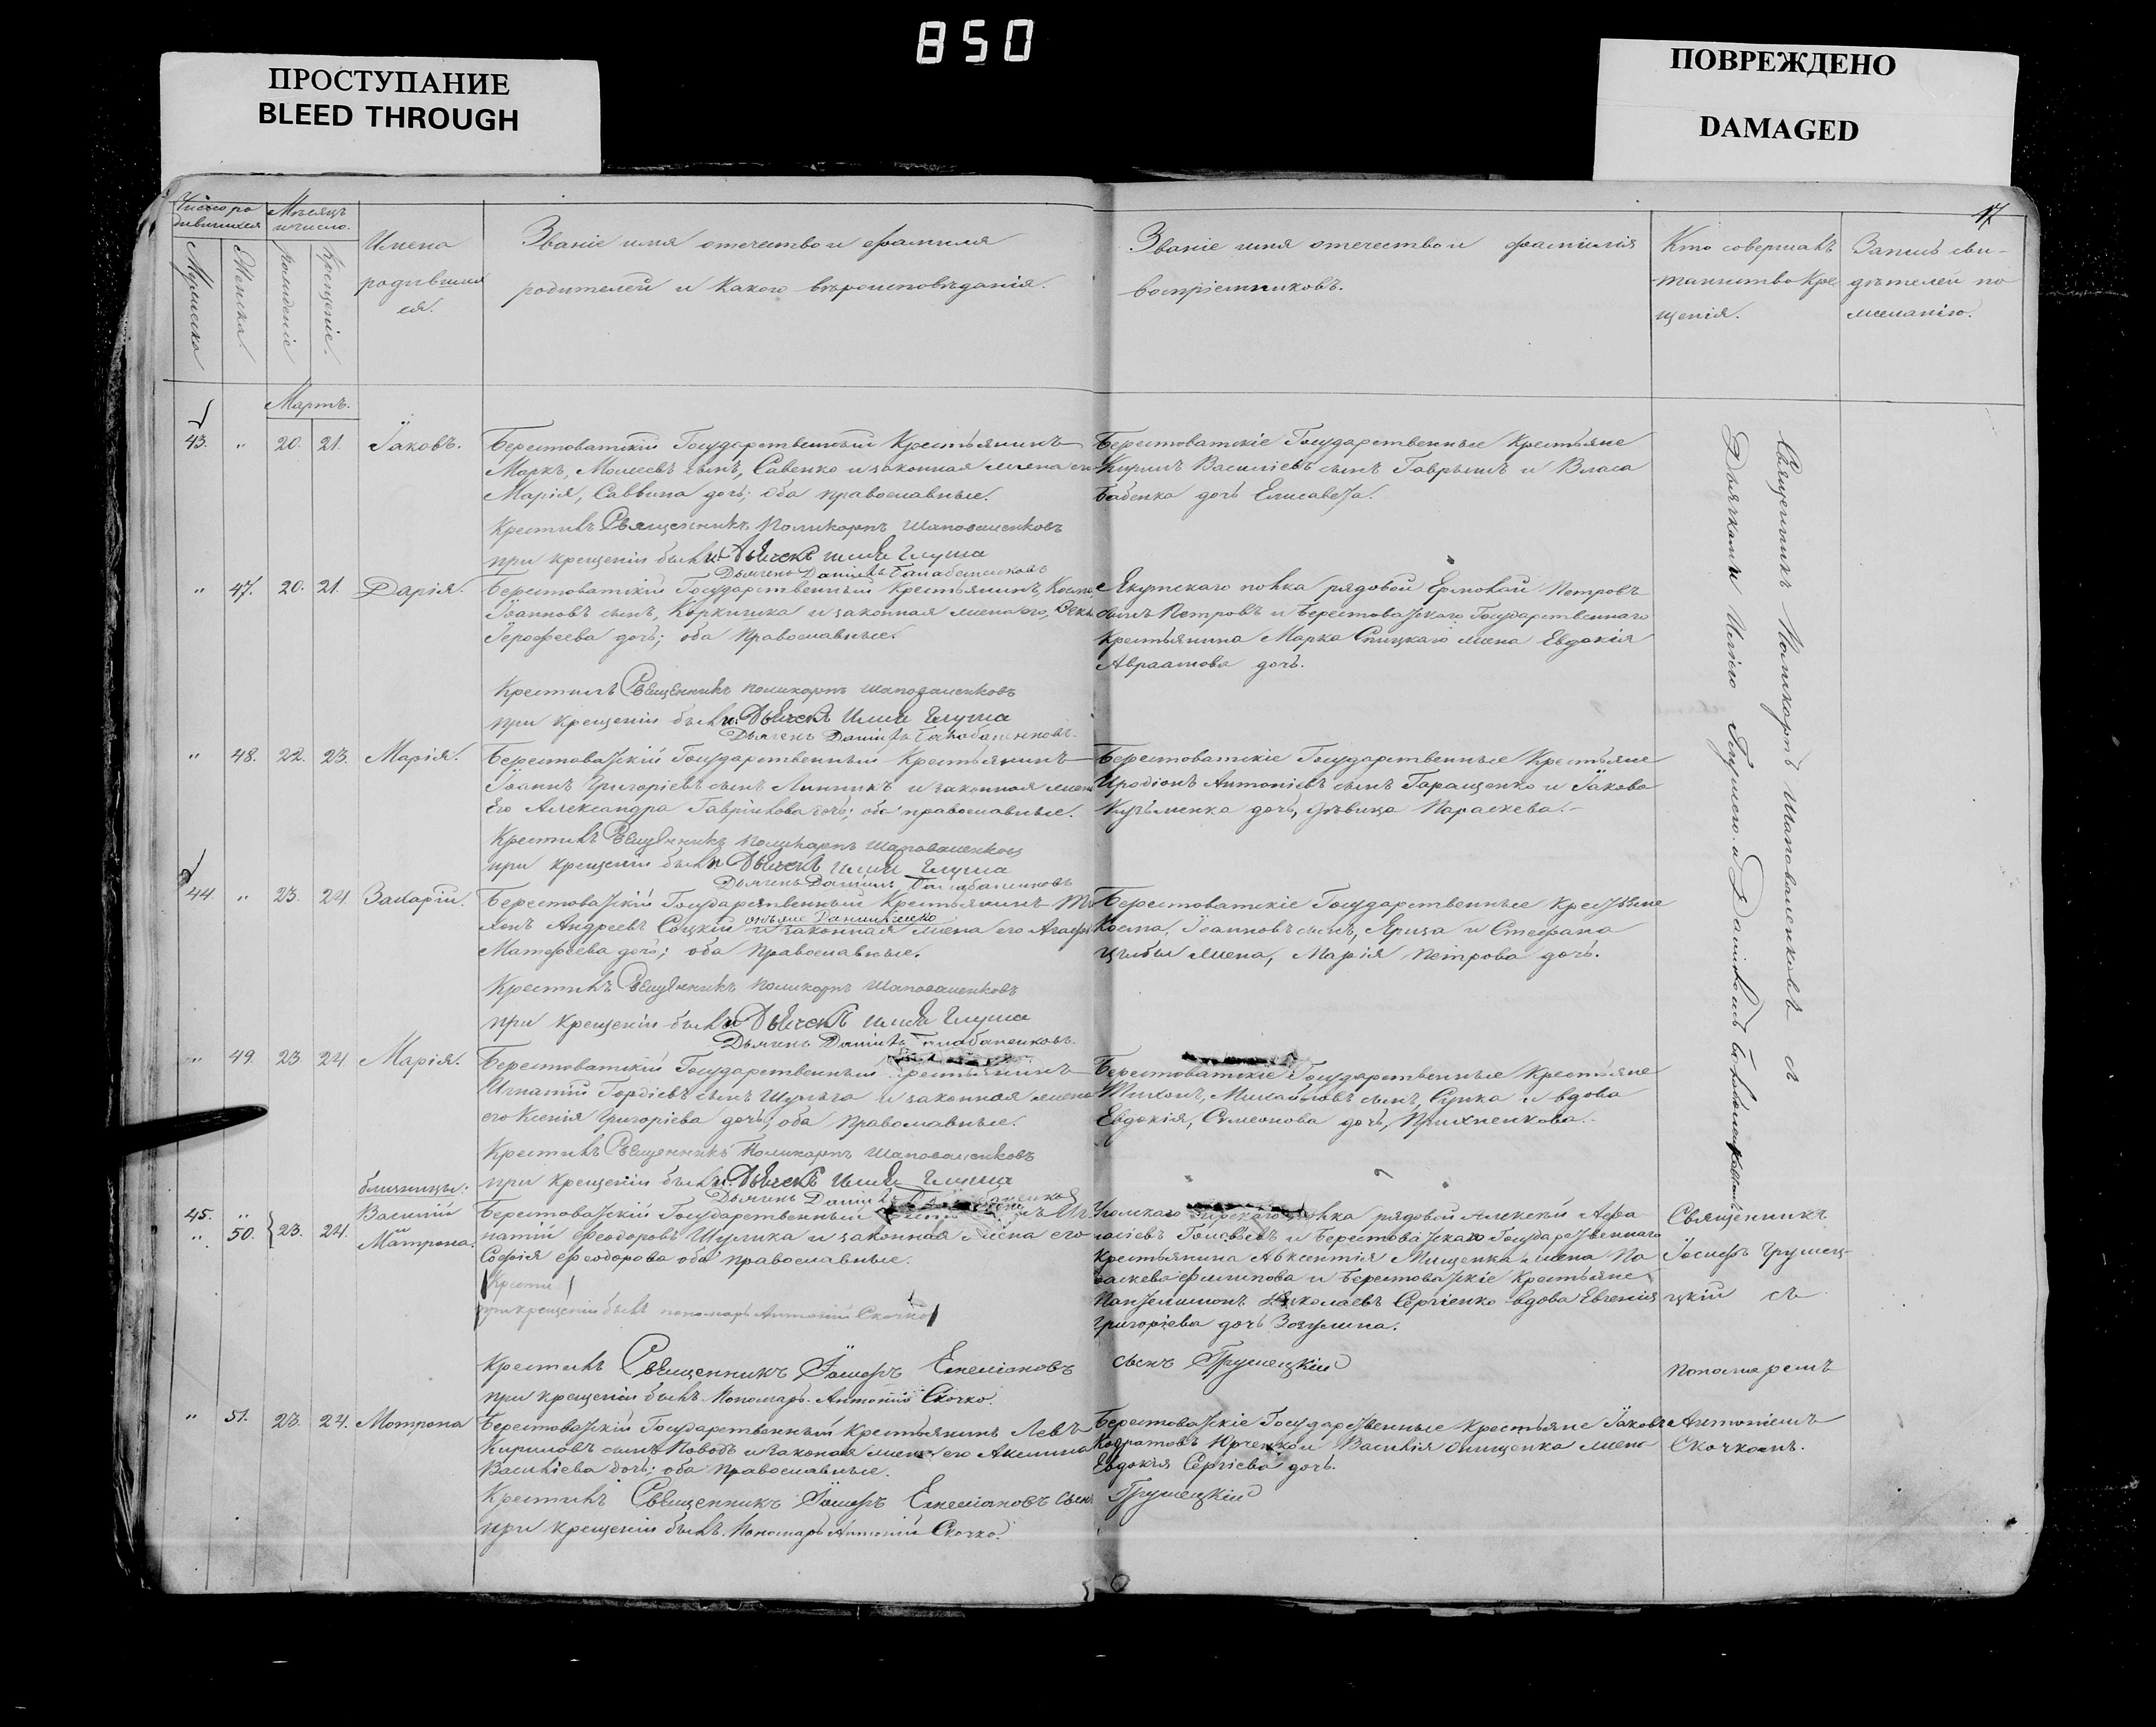 850
ПРОСТУПАНИЕ
BLEED THROUGH
ПОВРЕЖДЕНО
DAMAGED
17
Число ро
дившихся
Мѣсяцъ
и число.
Мужеска
Женска.
рожденіе
Крещеніе.
Имена
родивших
ся.
Званіе имя отечество и фамилія
родителей и какого вѣроисповѣданія.
Званіе имя отечество и фамилія
воспріемниковъ.
Кто совершалъ
таинство Кре
щенія.
Запись сви-
дѣтелей по
желанію.
Мартъ.
43. " 20. 21. Іаковъ.
Берестоватскій Государственный Крестьянинъ
Маркъ, Моисеевъ сынъ, Савенко и законная жена его
Марія, Саввина дочь; оба православные.
Крестилъ Священникъ Поликарпъ Шаповаленковъ
при крещеніи былъ: Дьячекъ Илія Глуша
Дьячекъ Даніилъ Балабаненковъ
Берестоватскіе Государственные Крестьяне
Василіевъ сынъ Гаврышъ и Власа
Бабенка дочь Елисавета.
" 47. 20. 21. Дарія.
Берестоватскій Государственный Крестьянинъ, Косма,
Іоанновъ сынъ, и законная жена его,
Іерофеева дочь; оба Православные.
Крестилъ Священникъ Поликарпъ Шаповаленковъ
при крещеніи былъ: Дьячекъ Илія Глуша
Дьячекъ Даніилъ Балабаненковъ
Якутскаго полка рядовой Ермолай Петровъ
сынъ Петровъ и Берестоватскаго Государственнаго
Крестьянина Марка Спицкаго жена Евдокія
Авраамова дочь.
" 48. 22. 23. Марія.
Берестоватскій Государственный Крестьянинъ
Іоаннъ Григоріевъ сынъ Линникъ и законная жена
Его Александра Гавріилова дочь; оба православные.
Крестилъ Священникъ Поликарпъ Шаповаленковъ
при крещеніи былъ Дьячекъ Илія Глуша
Дьячекъ Даніилъ Балабаненковъ
Берестоватскіе Государственные Крестьяне
Иродіонъ Антоніевъ сынъ Таращенко и Іакова
Кузьменка дочь, дѣвица Параскева.
44. " 23. 24. Захарій.
Берестоватскій Государственный Крестьянинъ
онъ же Данилченко
Андреевъ Соцкій и законная жена его
Матфеева дочь; оба православные.
Крестилъ Священникъ Поликарпъ Шаповаленковъ
при крещеніи былъ Дьячекъ Илія Глуша
Дьячекъ Даніилъ Балабаненковъ.
Берестоватскіе Государственные Крестьяне
Косма, Іоанновъ сынъ, Ярица и Стефана
Цыбы жена, Марія Петрова дочь.
" 49. 23. 24. Марія.
Берестоватскій Государственный Крестьянинъ
Игнатій Гордіевъ сынъ Шуляга и законная жена
его Ксенія Григоріева дочь; оба Православные.
Крестилъ Священникъ Поликарпъ Шаповаленковъ
при крещеніи былъ: Дьячекъ Илія Глуша
Дьячекъ Даніилъ
Берестоватскіе Государственные Крестьяне
Тихонъ, Михайловъ сынъ, Супка и вдова
Евдокія, Симеонова дочь, Прихненкова.
близнецы:
45. " Василій
" 50. 23. 24. Матрона.
Берестоватскій Государственный Иг
натій Феодоровъ Шулика и законная жена его
Софія Феодорова оба православные.
Крести
при крещеніи былъ пономарь Антоній Скочко
Крестилъ Священникъ Іосифъ Емеліановъ
сынъ Грушецкій
при крещеніи былъ Пономарь Антоній Скочко.
полка рядовой Алексѣй Афа
насіевъ и Берестоватскаго Государственнаго
Крестьянина Авксентія Мищенка жена Па
раскева Филипова и Берестоватскіе Крестьяне
Пантелимонъ Николаевъ Сергіенко вдова Евгенія
Григоріева дочь Зозулина.
" 51. 23. 24. Мотрона
Берестоватскій Государственный Крестьянинъ Левъ
Кириловъ сынъ и законая жена его Акилина
Василіева дочь; оба Православные.
Крестилъ Священникъ Іосифъ Емеліановъ сынъ
Грушецкій
при крещеніи былъ Пономарь Антоній Скочко.
Берестоватскіе Государственные Крестьяне Іаковъ
Кодратовъ Юрченко и Василія Онищенка жена
Евдокія Сергіева дочь.
Священникъ Поликарпъ Шаповаленковъ съ
Дьячками Иліею Глушею и Даніиломъ Балабаненковымъ
Священникъ
Іосифъ Грушец-
цкій съ
Пономаремъ
Антоніемъ
Скочкомъ.